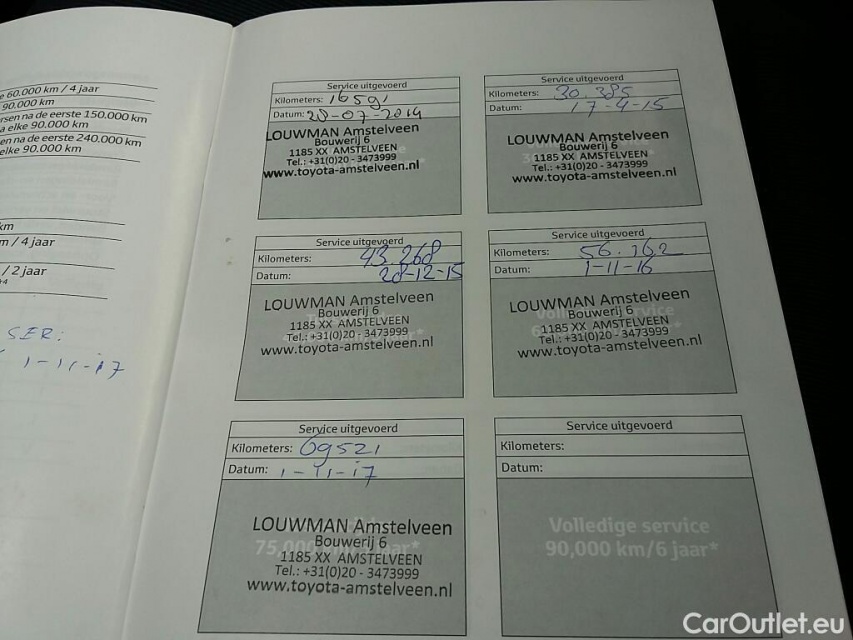 e 60.000 km / 4 jaar
90.000 km
rsen na de eerste 150.000 km
a elke 90.000 km
en na de eerste 240.000 km
elke 90.000 km
km
m / 4 jaar
/ 2 jaar
SER:
1-11-17
Service uitgevoerd
Kilometers: 16591
Datum: 28-07-2014
LOUWMAN Amstelveen
Bouwerij 6
1185 XX AMSTELVEEN
Tel.: +31(0)20 - 3473999
www.toyota-amstelveen.nl
Service uitgevoerd
Kilometers: 30.385
Datum: 17-4-15
LOUWMAN Amstelveen
Bouwerij 6
1185 XX AMSTELVEEN
Tel.: +31(0)20 - 3473999
www.toyota-amstelveen.nl
Service uitgevoerd
Kilometers: 43.268
Datum: 28-12-15
LOUWMAN Amstelveen
Bouwerij 6
1185 XX AMSTELVEEN
Tel.: +31(0)20 - 3473999
www.toyota-amstelveen.nl
Service uitgevoerd
Kilometers: 56.162
Datum: 1-11-16
LOUWMAN Amstelveen
Bouwerij 6
1185 XX AMSTELVEEN
Tel.: +31(0)20 - 3473999
www.toyota-amstelveen.nl
Service uitgevoerd
Kilometers: 69521
Datum: 1-11-17
LOUWMAN Amstelveen
Bouwerij 6
75,000
1185 XX AMSTELVEEN
Tel.: +31(0)20 - 3473999
www.toyota-amstelveen.nl
Service uitgevoerd
Kilometers:
Datum:
Volledige service
90,000 km/6 jaar*
CarOutlet.eu